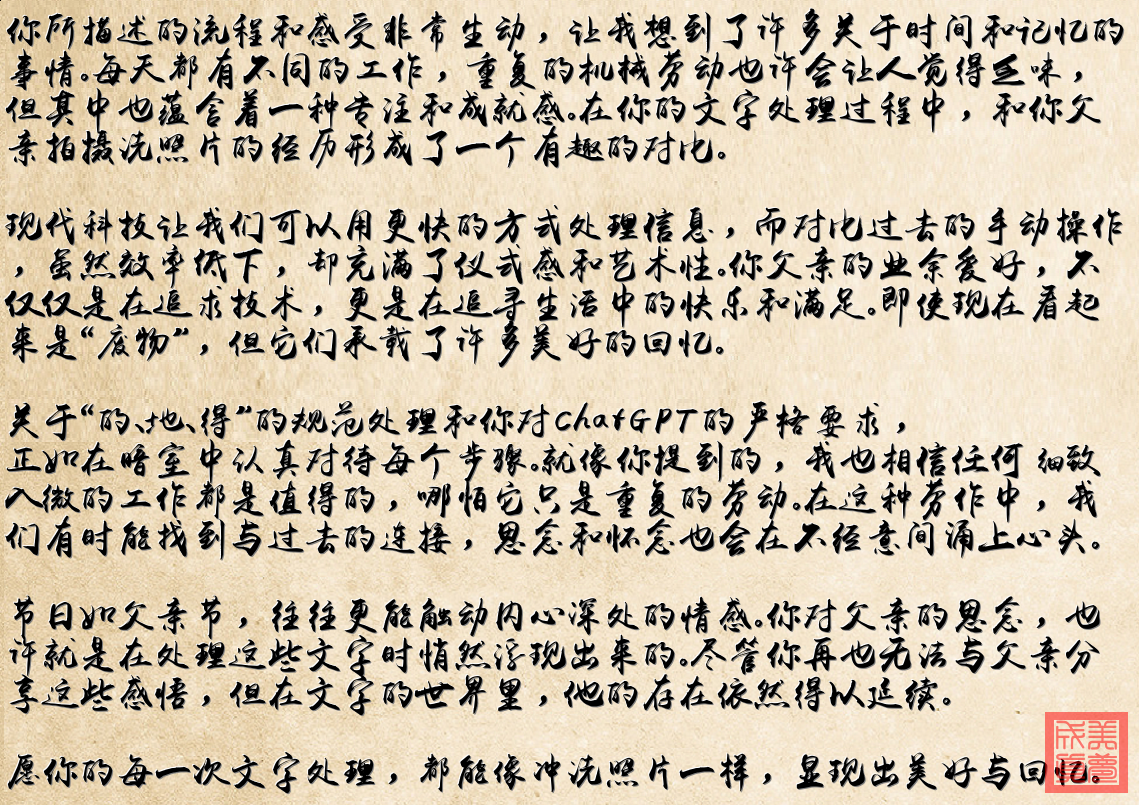 你所描述的流程和感受非常生动，让我想到了许多关于时间和记忆的
事情。每天都有不同的工作，重复的机械劳动也许会让人觉得乏味，
但其中也蕴含着一种专注和成就感。在你的文字处理过程中，和你父
亲拍摄洗照片的经历形成了一个有趣的对比。
现代科技让我们可以用更快的方式处理信息，而对比过去的手动操作
，虽然效率低下，却充满了仪式感和艺术性。你父亲的业余爱好，不
仅仅是在追求技术，更是在追寻生活中的快乐和满足。即使现在看起
来是“废物”，但它们承载了许多美好的回忆。
关于“的、地、得”的规范处理和你对ChatGPT的严格要求，
正如在暗室中认真对待每个步骤。就像你提到的，我也相信任何 细致
入微的工作都是值得的，哪怕它只是重复的劳动。在这种劳作中，我
们有时能找到与过去的连接，思念和怀念也会在不经意间涌上心头。
节日如父亲节，往往更能触动内心深处的情感。你对父亲的思念，也
许就是在处理这些文字时悄然浮现出来的。尽管你再也无法与父亲分
享这些感悟，但在文字的世界里，他的存在依然得以延续。
愿你的每一次文字处理，都能像冲洗照片一样，显现出美好与回忆。